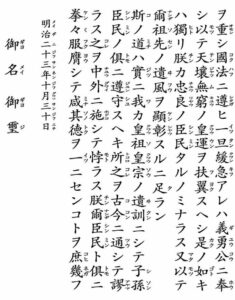 ヲ重シ國法ニ遵ヒ一旦緩急アレハ義勇公ニ奉
シ以テ天壤無窮ノ皇運ヲ扶翼スヘシ是ノ如キ
ハ獨リ朕カ忠良ノ臣民タルノミナラス又以テ
爾祖先ノ遺風ヲ顯彰スルニ足ラン
斯ノ道ハ實ニ我カ皇祖皇宗ノ遺訓ニシテ子孫
臣民ノ俱ニ遵守スヘキ所之ヲ古今ニ通シテ謬
ラス之ヲ中外ニ施シテ悖ラス朕爾臣民ト俱ニ
拳々服膺シテ咸其德ヲ一ニセンコトヲ庶幾フ
明治二十三年十月三十日
御名御璽